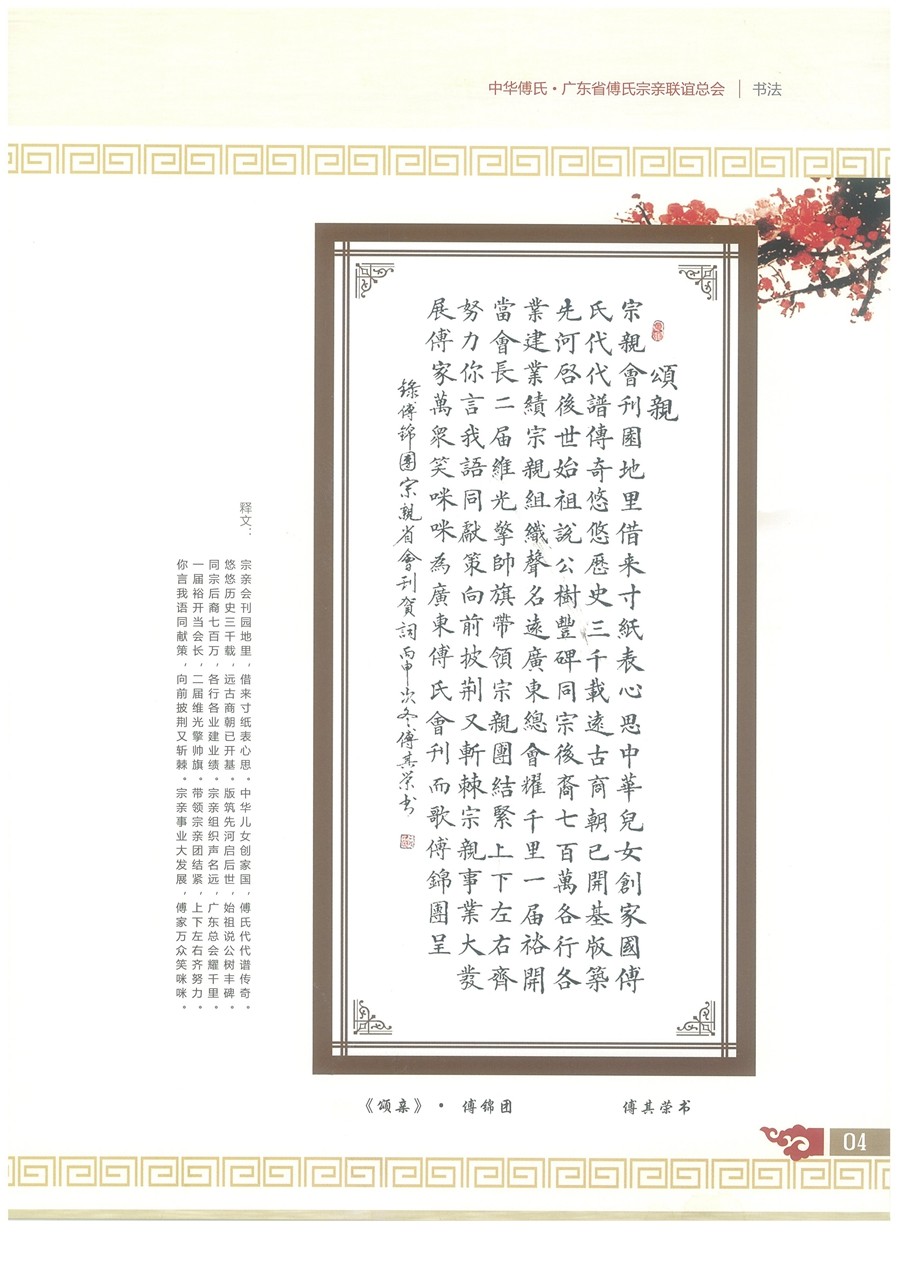 中华傅氏·广东省傅氏宗亲联谊总会 | 书法
頌親
宗親會刊園地里借来寸紙表心思中華兒女創家國傅
氏代代譜傳奇悠悠歷史三千載遠古商朝已開基版築
先河启後世始祖説公樹豐碑同宗後裔七百萬各行各
業建業績宗親組織聲名遠廣東總會耀千里一届裕開
當會長二届維光擎帥旗帶領宗親團結緊上下左右齊
努力你言我語同献策向前披荆又斬棘宗親事業大發
展傅家萬衆笑咪咪為廣東傅氏會刊而歌傅錦團呈
錄傅錦團宗親省會刊賀詞丙申次冬傅其榮书
释文：
宗亲会刊园地里，借来寸纸表心思。中华儿女创家国，傅氏代代谱传奇。
悠悠历史三千载，远古商朝已开基。版筑先河启后世，始祖说公树丰碑。
同宗后裔七百万，各行各业建业绩。宗亲组织声名远，广东总会耀千里。
一届裕开当会长，二届维光擎帅旗。带领宗亲团结紧，上下左右齐努力。
你言我语同献策，向前披荆又斩棘。宗亲事业大发展，傅家万众笑咪咪。
《颂亲》· 傅锦团 傅其荣书
04